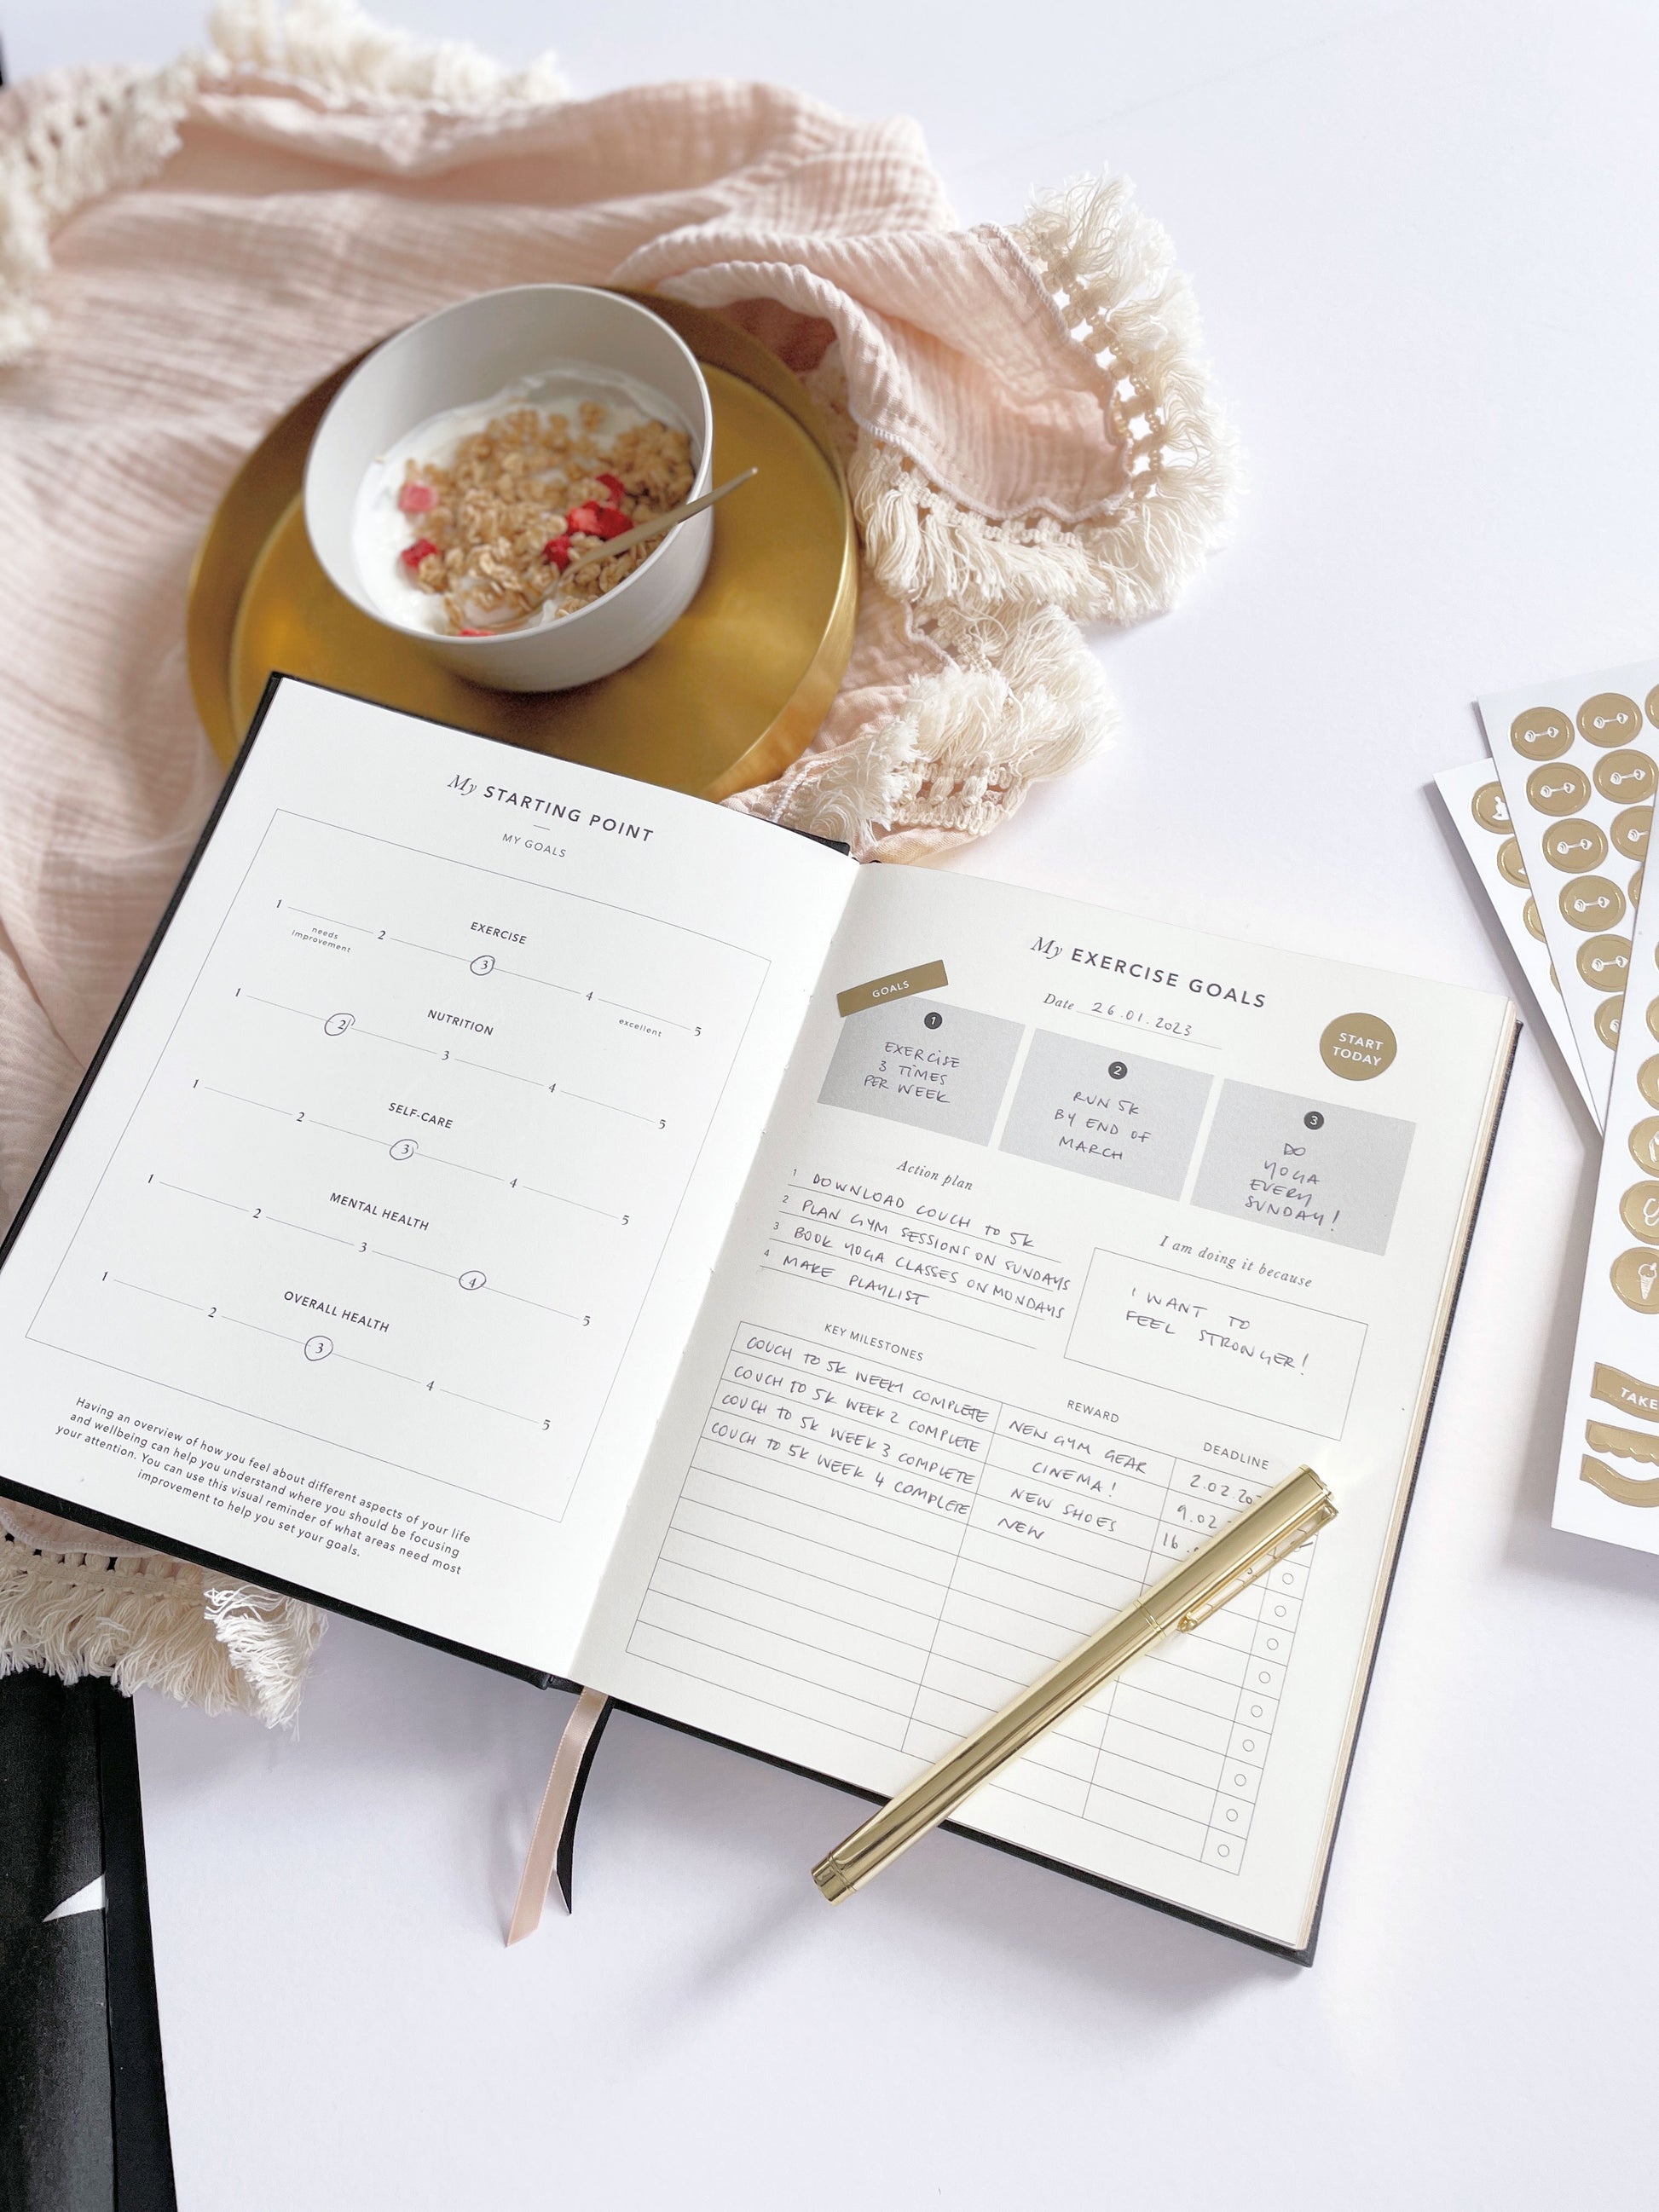 My STARTING POINT
MY GOALS
EXERCISE
1 2 3 4 5
needs
improvement
excellent
NUTRITION
1 2 3 4 5
SELF-CARE
1 2 3 4 5
MENTAL HEALTH
1 2 3 4 5
OVERALL HEALTH
1 2 3 4 5
Having an overview of how you feel about different aspects of your life
and wellbeing can help you understand where you should be focusing
your attention. You can use this visual reminder of what areas need most
improvement to help you set your goals.
My EXERCISE GOALS
Date 26.01.2023
GOALS
START
TODAY
1
EXERCISE
3 TIMES
PER WEEK
2
RUN 5K
BY END OF
MARCH
3
DO
YOGA
EVERY
SUNDAY!
Action plan
1 DOWNLOAD COUCH TO 5K
2 PLAN GYM SESSIONS ON SUNDAYS
3 BOOK YOGA CLASSES ON MONDAYS
4 MAKE PLAYLIST
I am doing it because
I WANT TO
FEEL STRONGER!
KEY MILESTONES REWARD DEADLINE
COUCH TO 5K WEEK1 COMPLETE NEW GYM GEAR 2.02.20
COUCH TO 5K WEEK 2 COMPLETE CINEMA! 9.02
COUCH TO 5K WEEK 3 COMPLETE NEW SHOES 16.
COUCH TO 5K WEEK 4 COMPLETE NEW
TAKE